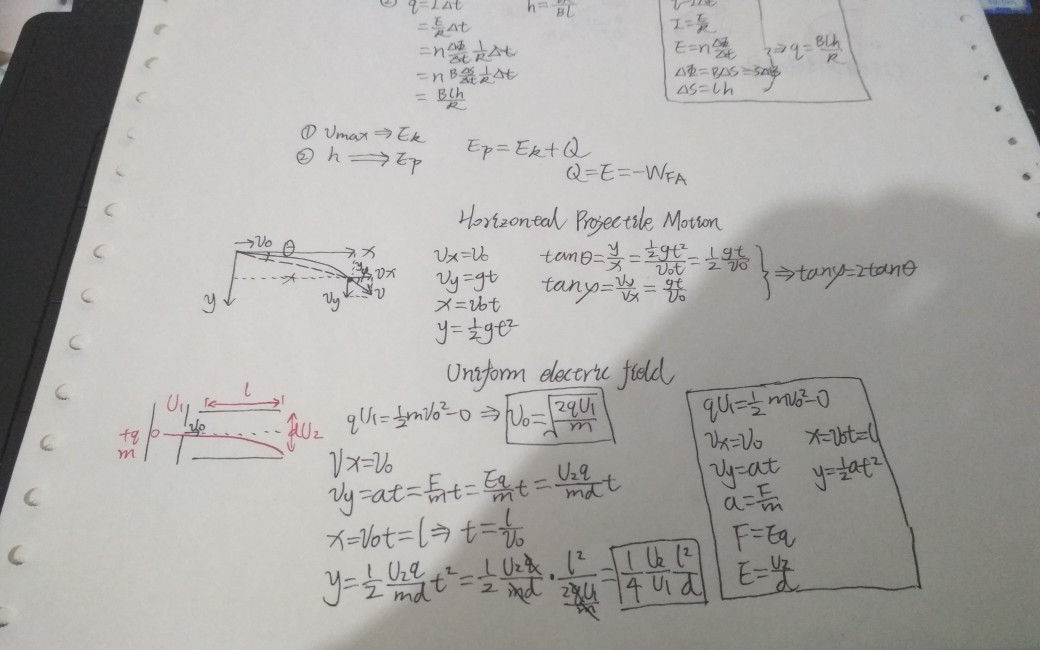 ② q=IΔt
=E/R Δt
=n ΔΦ/Δt 1/R Δt
=n BΔS/Δt 1/R Δt
= Blh/R
I=E/R
E=n ΔΦ/Δt
ΔS=lh
⇒ q= Blh/R
① Vmax ⇒ Ek
② h ⟹ Ep
Ep=Ek+Q
Q=E=-WFA
Horizontal Projectile Motion
→V₀ θ x
x
y Vy Vx V
Vx=V₀
Vy=gt
x=V₀t
y=½gt²
tanθ= y/x = ½gt²/V₀t = ½ gt/V₀
tanγ= Vy/Vx = gt/V₀
⇒ tanγ=2tanθ
Uniform electric field
U₁ l
+q V₀ d U₂
m
qU₁=½mV₀²-0 ⇒ V₀=√(2qU₁/m)
Vx=V₀
Vy=at= F/m t= Eq/m t= U₂q/md t
x=V₀t=l ⇒ t= l/V₀
y= ½ U₂q/md t² = ½ U₂q/md · l²/(2qU₁/m) = ¼ U₂/U₁ l²/d
qU₁=½mV₀²-0
Vx=V₀ x=V₀t=l
Vy=at y=½at²
a=F/m
F=Eq
E=U₂/d